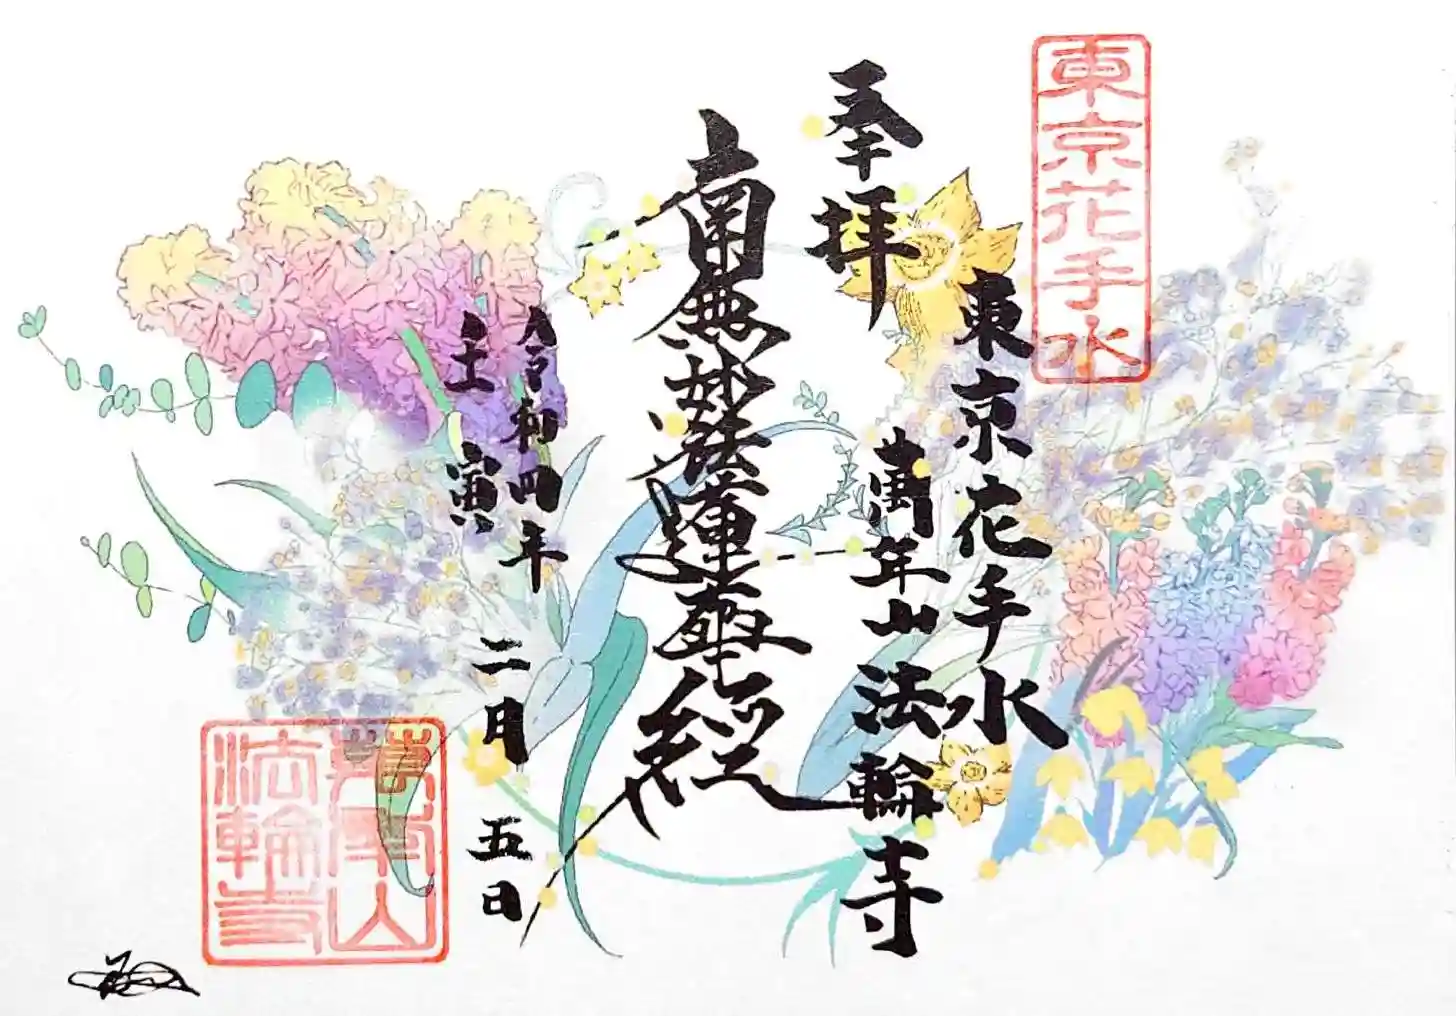 東京花手水
奉拝
東京花手水
萬年山法輪寺
南無妙法蓮華経
令和四年
壬寅
二月五日
萬年山
法輪寺